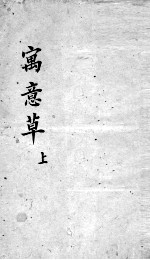 寓意草上